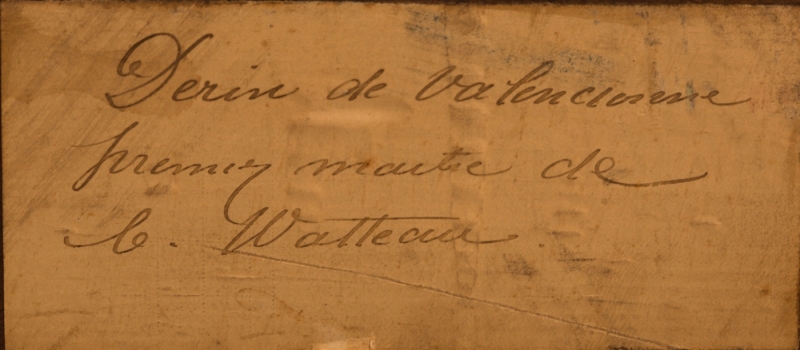 Derin de Valencienne
premier maitre de
C. Watteau.